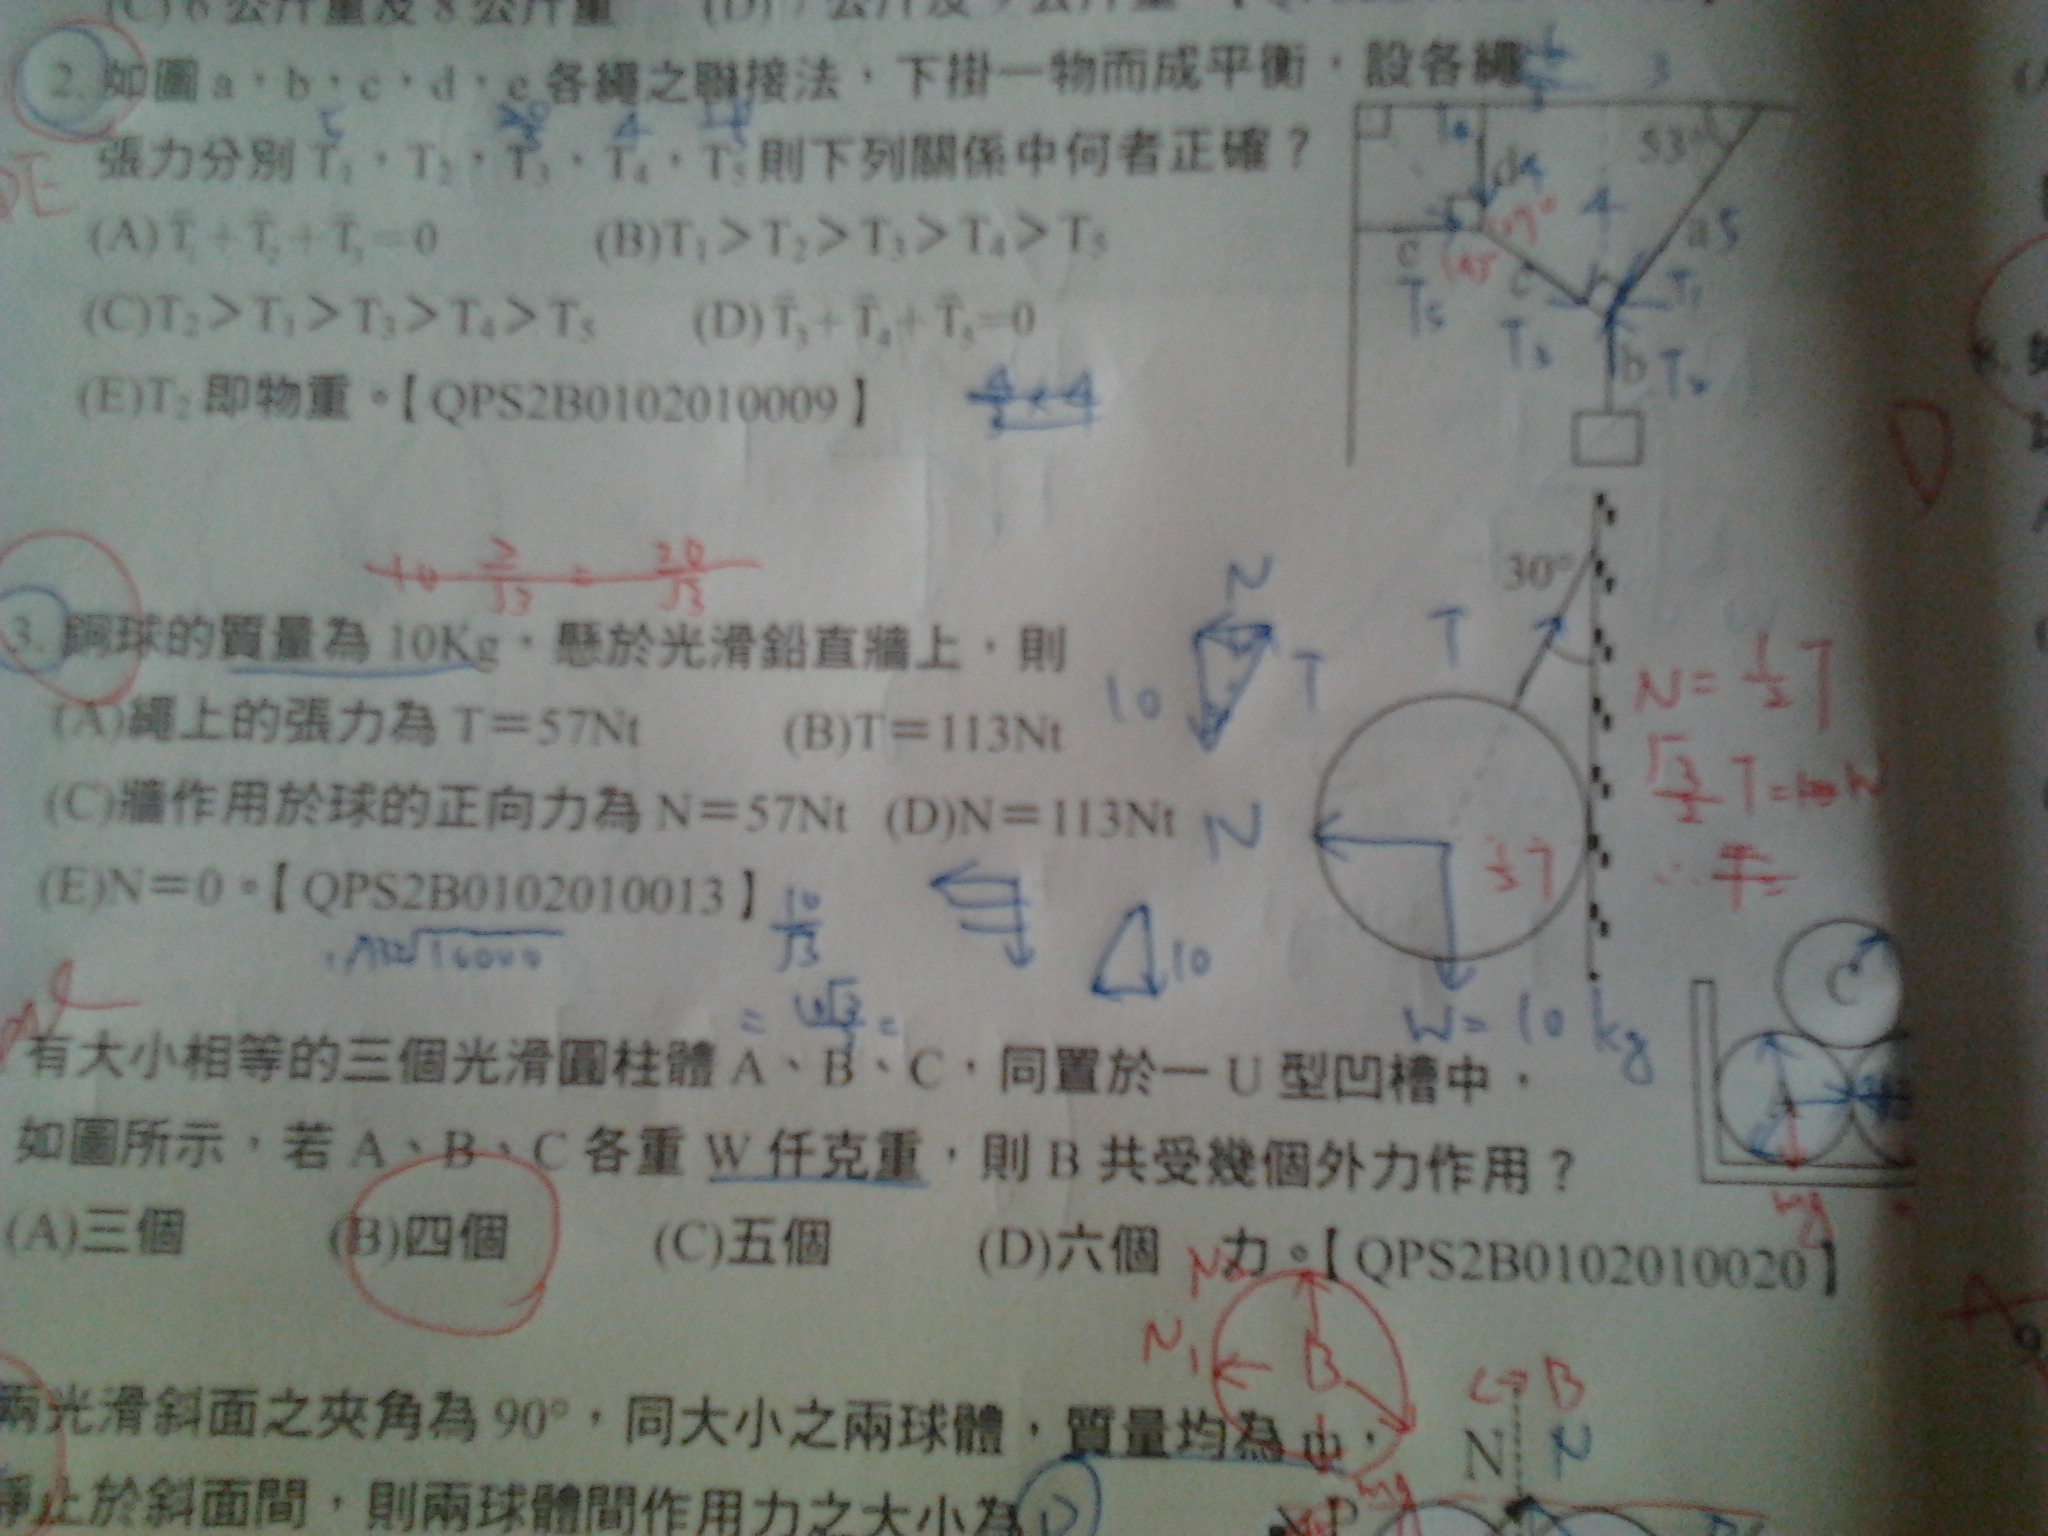 (C) 6 公斤重及 8 公斤重 (D)
2. 如圖 a、b、c、d、e 各繩之聯接法,下掛一物而成平衡,設各繩
張力分別 T₁、T₂、T₃、T₄、T₅ 則下列關係中何者正確?
53°
(A) T⃗₁+T⃗₂+T⃗₃=0 (B)T₁>T₂>T₃>T₄>T₅
(C)T₂>T₁>T₃>T₄>T₅ (D) T⃗₃+T⃗₄+T⃗₅=0
(E)T₂ 即物重。【QPS2B0102010009】
d4
4
a5
e
c
T₅
T₃
T₁
b
T₂
30°
3. 鋼球的質量為 10Kg,懸於光滑鉛直牆上,則
(A)繩上的張力為 T=57Nt (B)T=113Nt
(C)牆作用於球的正向力為 N=57Nt (D)N=113Nt
(E)N=0。【QPS2B0102010013】
N
10
T
T
N
N=1/2 T
√3/2 T=
10/√3
10
W=10 kg
有大小相等的三個光滑圓柱體 A、B、C,同置於一 U 型凹槽中,
如圖所示,若 A、B、C 各重 W 仟克重,則 B 共受幾個外力作用?
(A)三個 (B)四個 (C)五個 (D)六個 力。【QPS2B0102010020】
C
mg
N₁
B
mg
兩光滑斜面之夾角為 90°,同大小之兩球體,質量均為 m,
靜止於斜面間,則兩球體間作用力之大小為
D
B
N
N
P